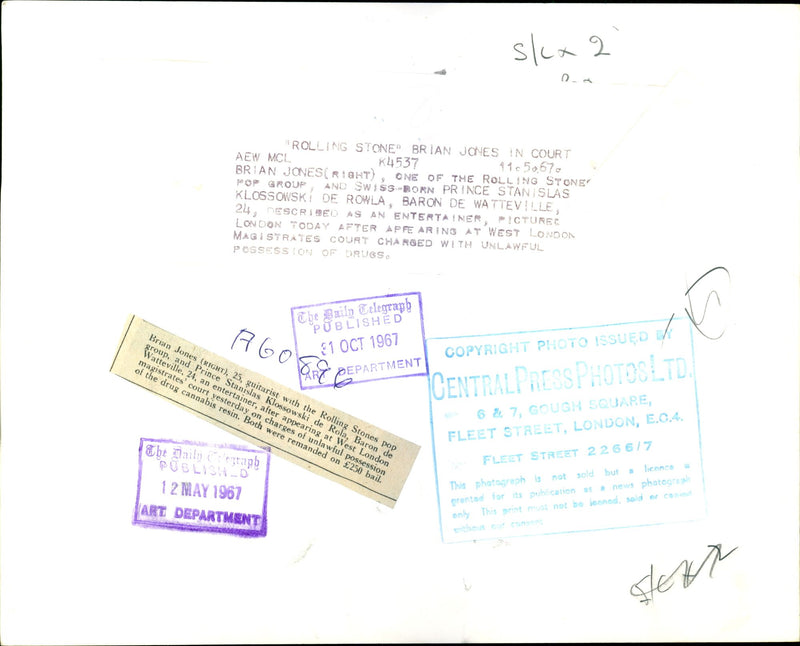 S/Lx 2
"ROLLING STONE" BRIAN JONES IN COURT
AEW MCL K4537 11.5.67.
BRIAN JONES(RIGHT), ONE OF THE ROLLING STONES
POP GROUP, AND SWISS-BORN PRINCE STANISLAS
KLOSSOWSKI DE ROWLA, BARON DE WATTEVILLE,
24, DESCRIBED AS AN ENTERTAINER, PICTURED
LONDON TODAY AFTER APPEARING AT WEST LONDON
MAGISTRATES COURT CHARGED WITH UNLAWFUL
POSSESSION OF DRUGS.
The Daily Telegraph
PUBLISHED
31 OCT 1967
ART DEPARTMENT
A60896
Brian Jones (RIGHT), 25, guitarist with the Rolling Stones pop
group, and Prince Stanislas Klossowski de Rola, Baron de
Watteville, 24, an entertainer, after appearing at West London
magistrates court yesterday on charges of unlawful possession
of the drug cannabis resin. Both were remanded on £250 bail.
The Daily Telegraph
PUBLISHED
12 MAY 1967
ART DEPARTMENT
COPYRIGHT PHOTO ISSUED BY
CENTRAL PRESS PHOTOS LTD.
6 & 7, GOUGH SQUARE,
FLEET STREET, LONDON, E.C.4.
FLEET STREET 2266/7
This photograph is not sold but a licence is
granted for its publication as a news photograph
only. This print must not be loaned, sold or copied
without our consent